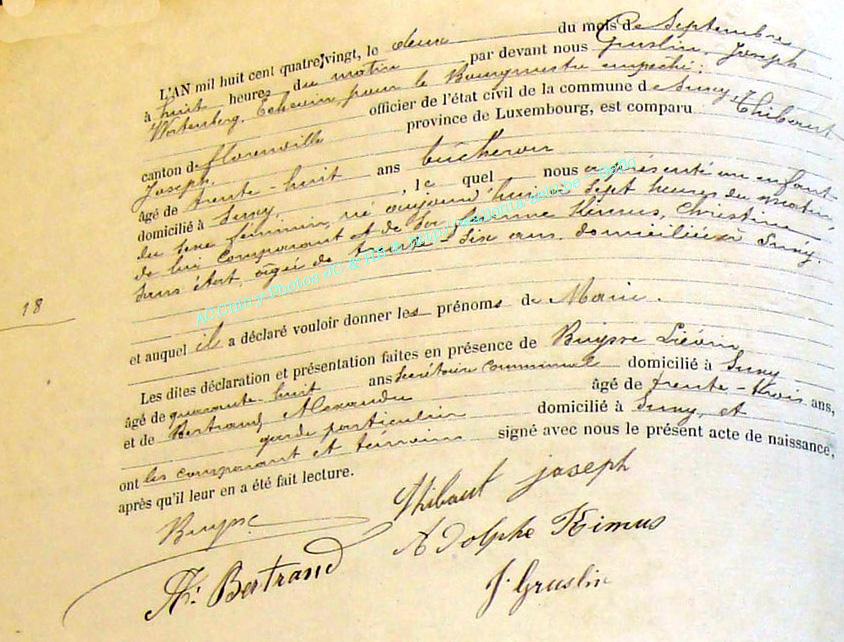 L'AN mil huit cent quatre-vingt, le deux du mois de Septembre
à huit heures du matin par devant nous Gruslin, Joseph
Watenberg, Echevin, pour le Bourgmestre empêché;
officier de l'état civil de la commune de Suny, Thibaut
canton de florenville province de Luxembourg, est comparu
Joseph,
âgé de trente-huit ans bûcheron
domicilié à Suny, le quel nous a présenté un enfant
du sexe féminin, né aujourd'hui à Sept heures du matin,
de lui comparant et de Sa femme Kemus, Christine
Sans état, agée de trente-Six ans domiciliée à Suny.
18
et auquel il a déclaré vouloir donner les prénoms de Marie.
Les dites déclaration et présentation faites en présence de Buysse Liévin
âgé de quarante-huit ans Secrétaire Communal domicilié à Suny
et de Bertrand, Alexandre âgé de trente-trois ans,
garde particulier domicilié à Suny, et
ont les comparant et témoins signé avec nous le présent acte de naissance,
après qu'il leur en a été fait lecture.
Buysse Thibaut joseph
Adolphe Kimus
A. Bertrand
J. Gruslin